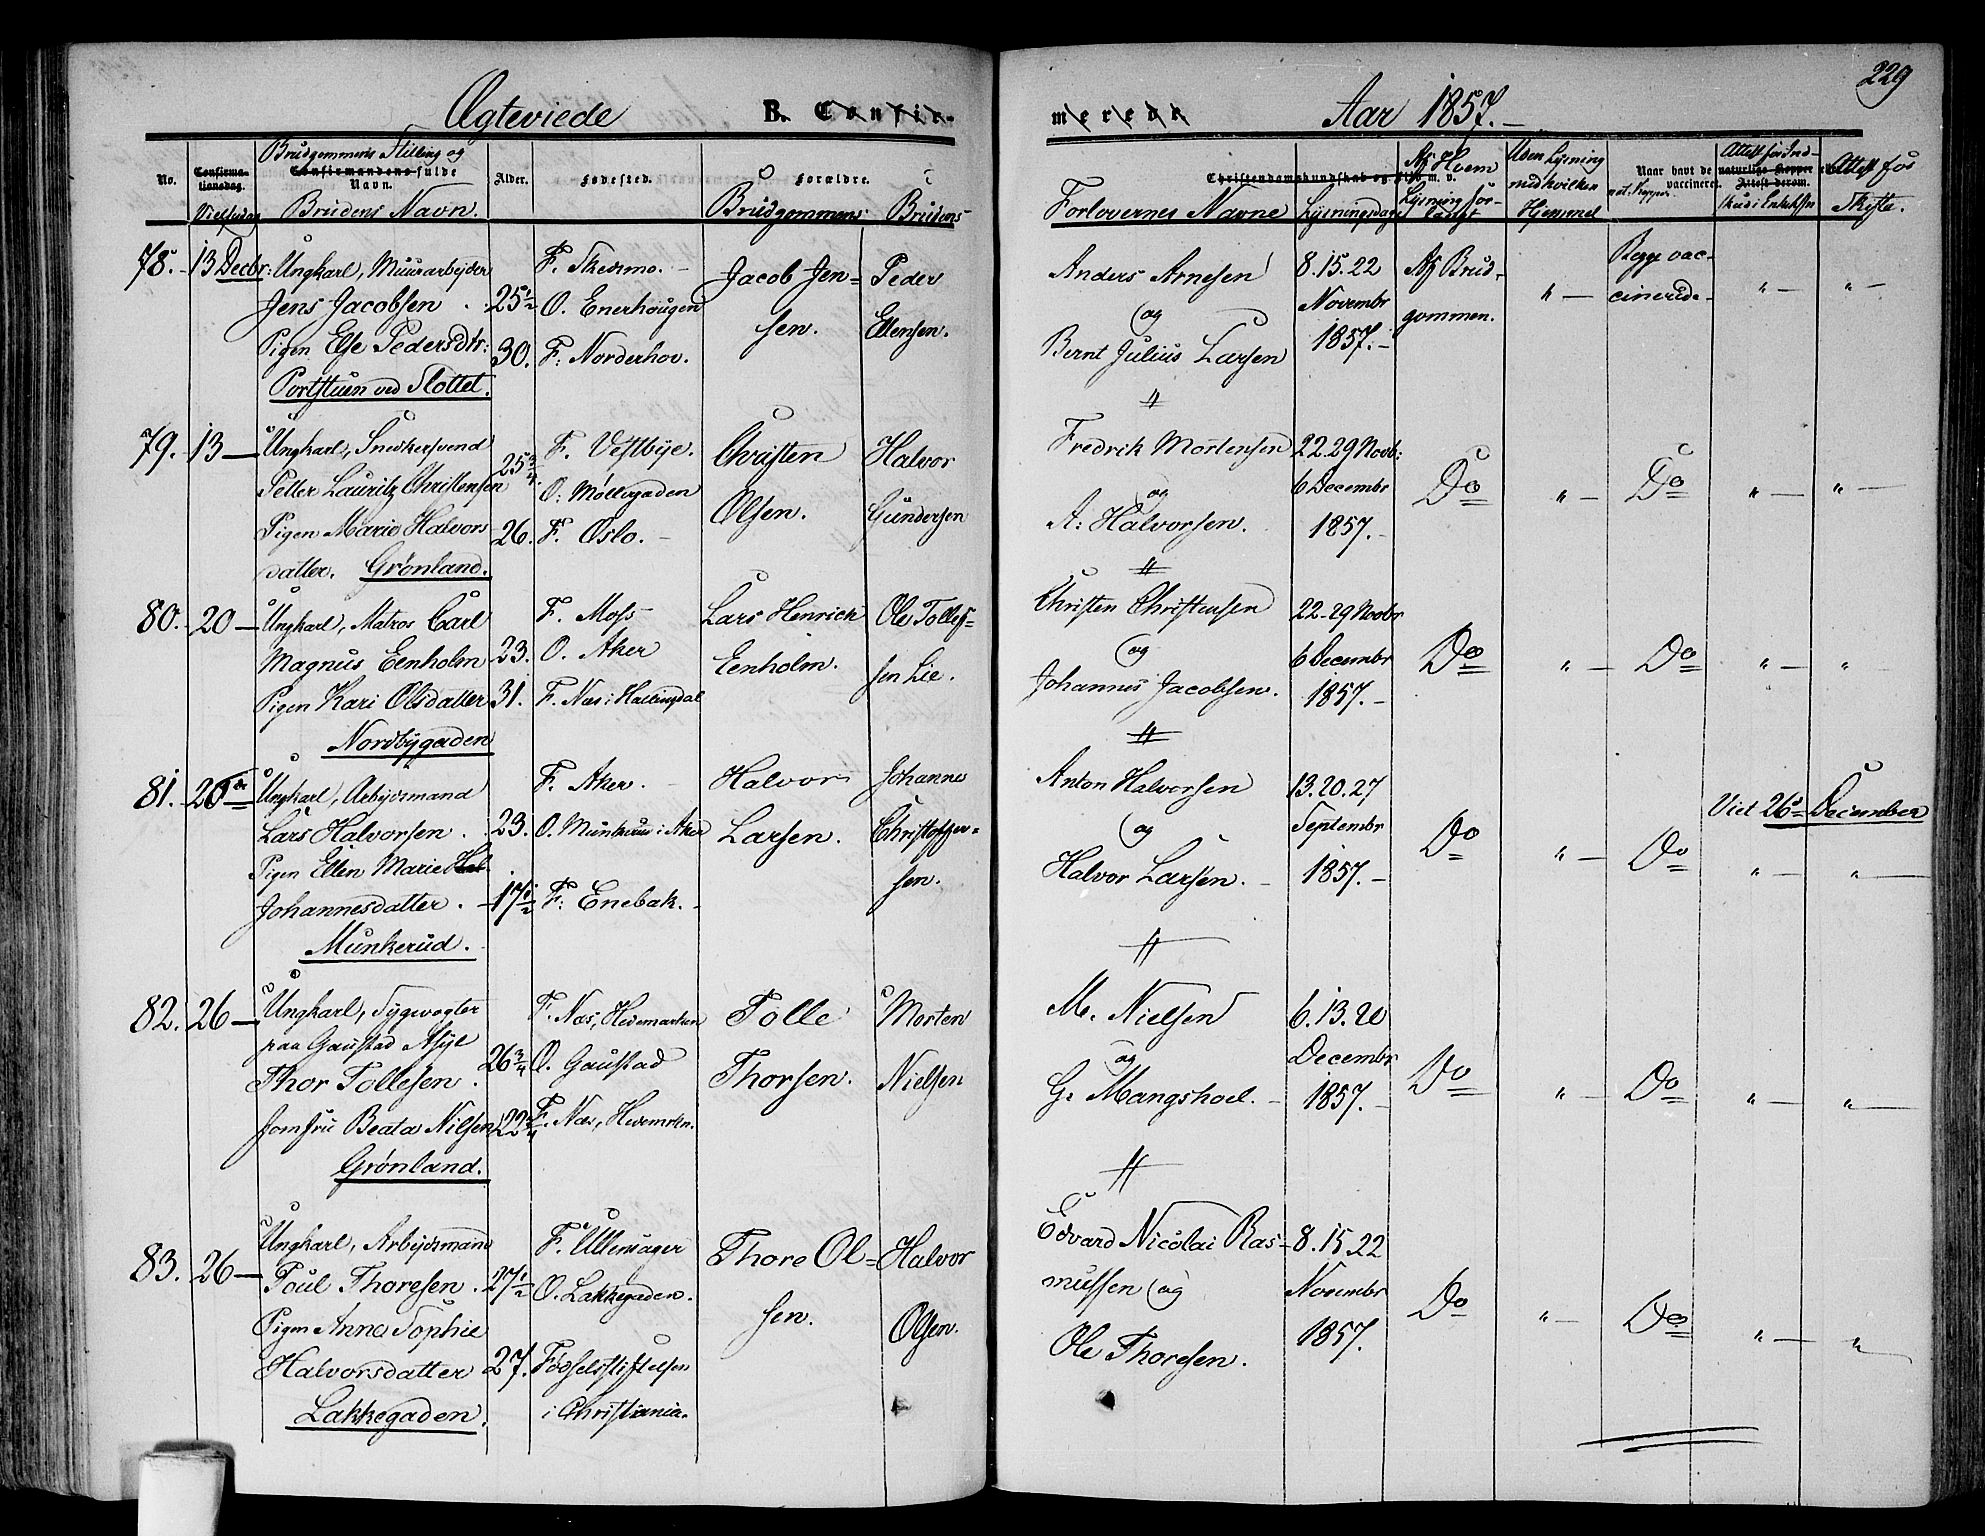 229
Ægteviede B. Confir-
merede Aar 1857.
No. Confirma-
tionsdag. Brudgommens Stilling og
Confirmandens fulde
Navn. Alder. Fødested. Forældre.
Brudens Navn. Brudgommens Brudens
Christendomskundskab og Flid m. v.
Forlovernes Navne Lysningsdage Af Hvem
Lysning for-
langt Uden Lysning
med hvilken
Hjemmel Naar havt de naturlige Kopper
vaccineret. Attest derom. Attest for
Skifte.
78. 13 Decbr: Ungkarl, Muurarbeider
Jens Jacobsen 25½
Pigen Else Pedersdtr: 30.
Portstuen ved Slottet.
F. Skedsmo.
O. Enerhougen
F. Norderhov.
Jacob Jen-
sen.
Peder
Ellensen.
Anders Arnesen
og
Bernt Julius Larsen
8. 15. 22
Novembr
1857.
Af Brud-
gommen.
" Begge vac-
cinerede " "
79. 13 Ungkarl, Snedkersvend
Petter Lauritz Christensen 25¾
Pigen Marie Halvors 26.
datter. Grønland.
F. Vestbye.
O. Møllegaden
F. Oslo.
Christen
Olsen.
Halvor
Gundersen
Fredrik Mortensen
og
A. Halvorsen.
22. 29 Novb:
6 Decembr
1857.
Do " Do " "
80. 20 Ungkarl, Matros Carl
Magnus Eenholm 23.
Pigen Kari Olsdatter 31.
Nordbygaden
F. Moss
O. Aker
F. Næs i Hallingdal
Lars Henrick
Eenholm.
Ole Tollef-
sen Lie.
Christen Christensen
og
Johannes Jacobsen.
22. 29 Novbr
6 Decembr
1857.
Do " Do " "
81. 20de Ungkarl, Arbeidsmand
Lars Halvorsen 23.
Pigen Ellen Marie
Johannesdatter 17½
Munkerud.
F. Aker.
O. Munkerud i Aker
F. Enebak.
Halvor
Larsen.
Johannes
Christoffer-
sen.
Anton Halvorsen
og
Halvor Larsen.
13. 20. 27
Septembr
1857.
Do " Do " "
Viet 26de December
82. 26 Ungkarl, Sygevogter
paa Gaustad Asyl
Thor Tollefsen 26¾
Jomfru Beata Nilsen 22¾
Grønland.
F. Næs, Hedemarken
O. Gaustad
F. Næs, Hedemarken.
Tolle
Thorsen.
Morten
Nielsen
M. Nielsen
og
G. Mangshoel.
6. 13. 20
Decembr
1857.
Do " Do " "
83. 26 Ungkarl, Arbeidsmand
Poul Thoresen 27½
Pigen Anne Sophie
Halvorsdatter 27.
Lakkegaden.
F. Ullensager
O. Lakkegaden.
Fødselsstiftelsen
i Christiania.
Thore Ol-
sen.
Halvor
Olsen.
Edvard Nicolai Ras-
mussen og
Ole Thoresen.
8. 15. 22
Novembr
1857.
Do " Do " "